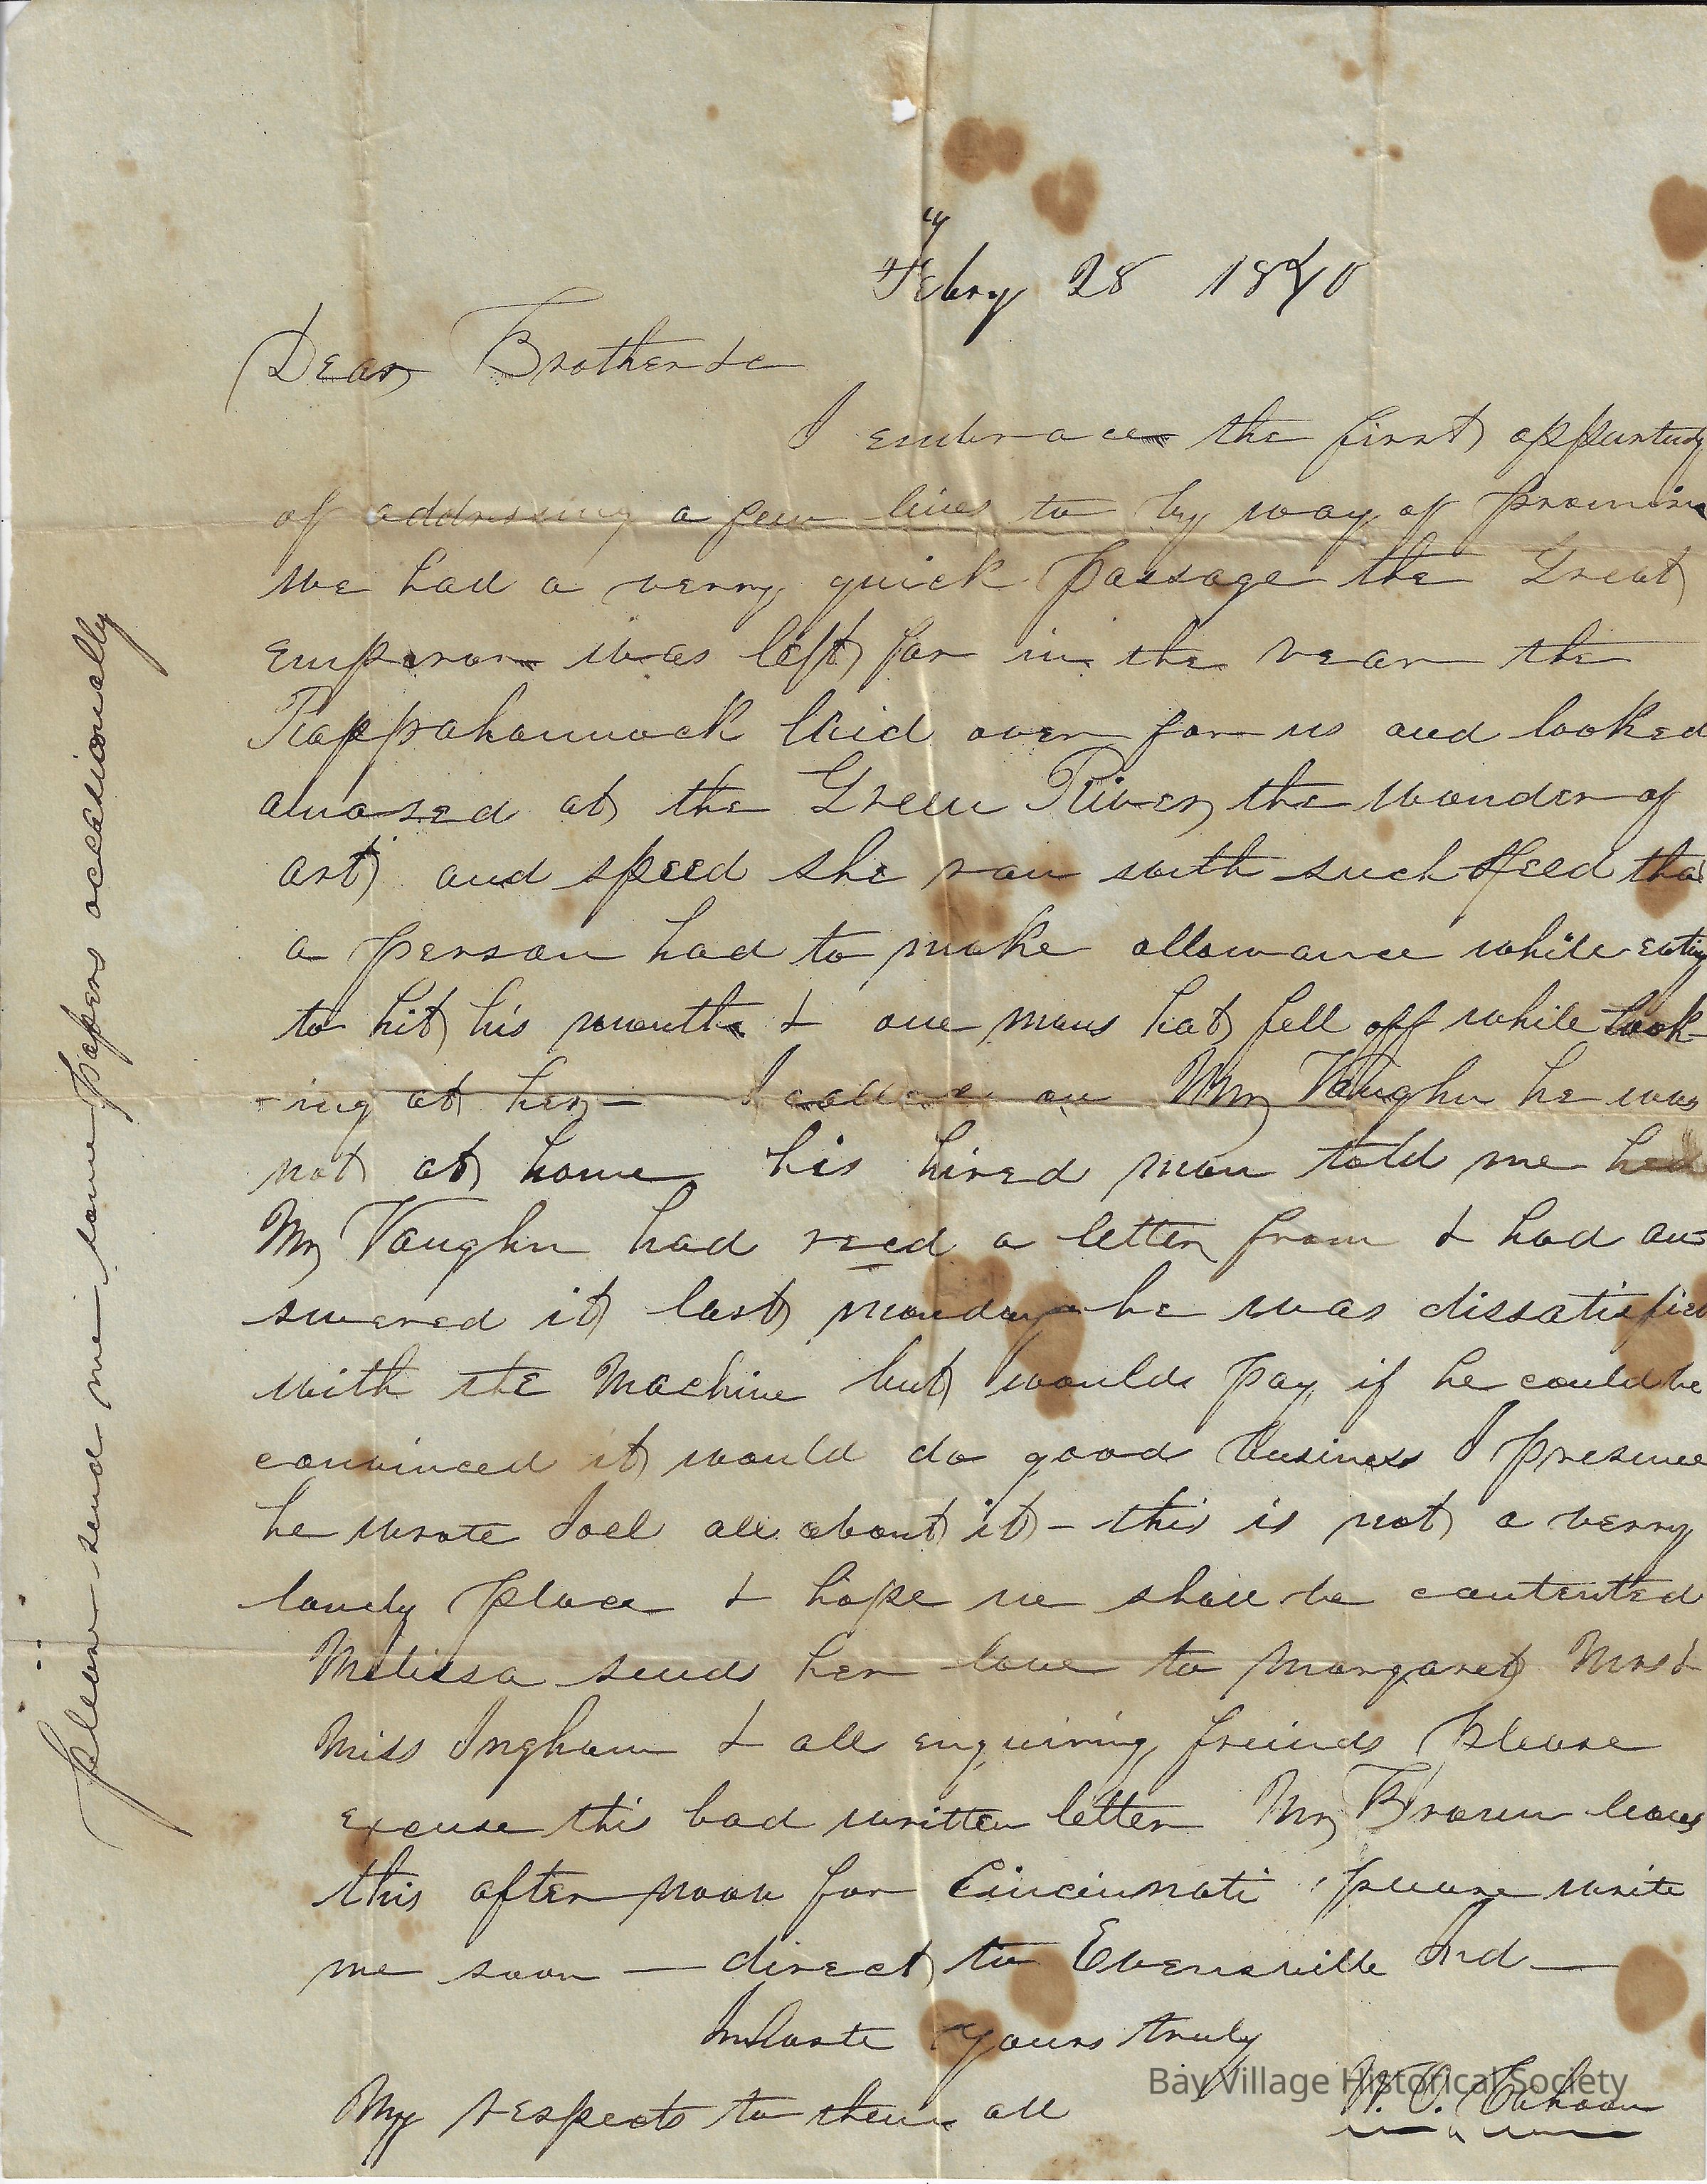 Febry 28 1840
Dear Brother &c
I embrace the first oppurtudy
of addressing a few lines to by way of promise
we had a verry quick passage the Great
emperor was left far in the rear the
Rappahannock laid over for us and looked
amased at the Green River the wonder of
art and speed she ran with such speed tha
a person had to make allowance while eating
to hit his mouth & one mans hat fell off while look-
-ing at her — I called on Mr Vaughn he was
not at home his hired man told me
Mr Vaughn had recd a letter from & had an=
swered it last monday he was dissatisfied
with the Machine but would pay if he could be
convinced it would do good business I presume
he wrote Joel all about it – this is not a verry
lonely place & hope we shall be contented
Melissa sends her love to Margaret Mrs &
Miss Ingham & all enquiring freinds please
excuse this bad written letter Mr Brown leaves
this after noon for Cincinnati please write
me soon — direct to Evensville Ind —
In haste yours truly
Bay Village Historical Society
Cahoon
My respects to them all
please send me some papers occasionally